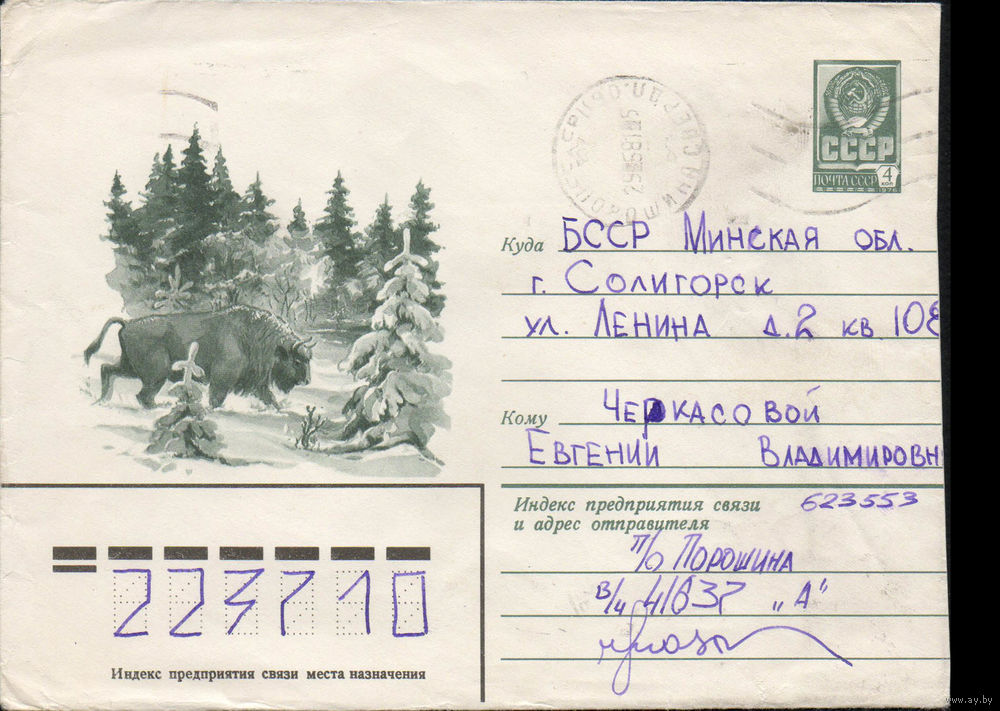 СССР
ПОЧТА СССР
4
КОП
1976
Куда БССР МИНСКАЯ ОБЛ.
г. СОЛИГОРСК
УЛ. ЛЕНИНА Д. 2 КВ. 108
Кому ЧЕРКАСОВОЙ
ЕВГЕНИИ ВЛАДИМИРОВН
Индекс предприятия связи
и адрес отправителя
623553
П/О ПОРОШИНА
В/Ч 41637 „А"
223710
Индекс предприятия связи места назначения
www.ay.by